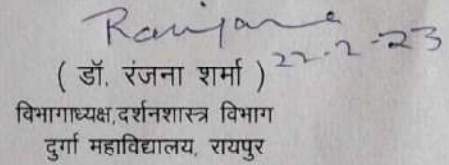 Ranjana
22-2-23
( डॉ. रंजना शर्मा )
विभागाध्यक्ष,दर्शनशास्त्र विभाग
दुर्गा महाविद्यालय, रायपुर